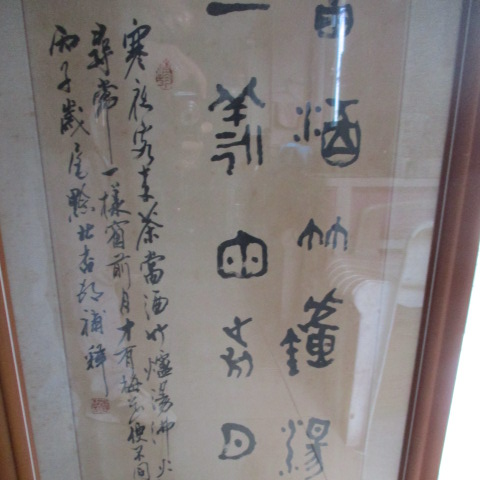 酒竹爐湯
一樣窗前月
寒夜客來茶當酒竹爐湯沸火
尋常一樣窗前月才有梅花便不同
丙子歲尾